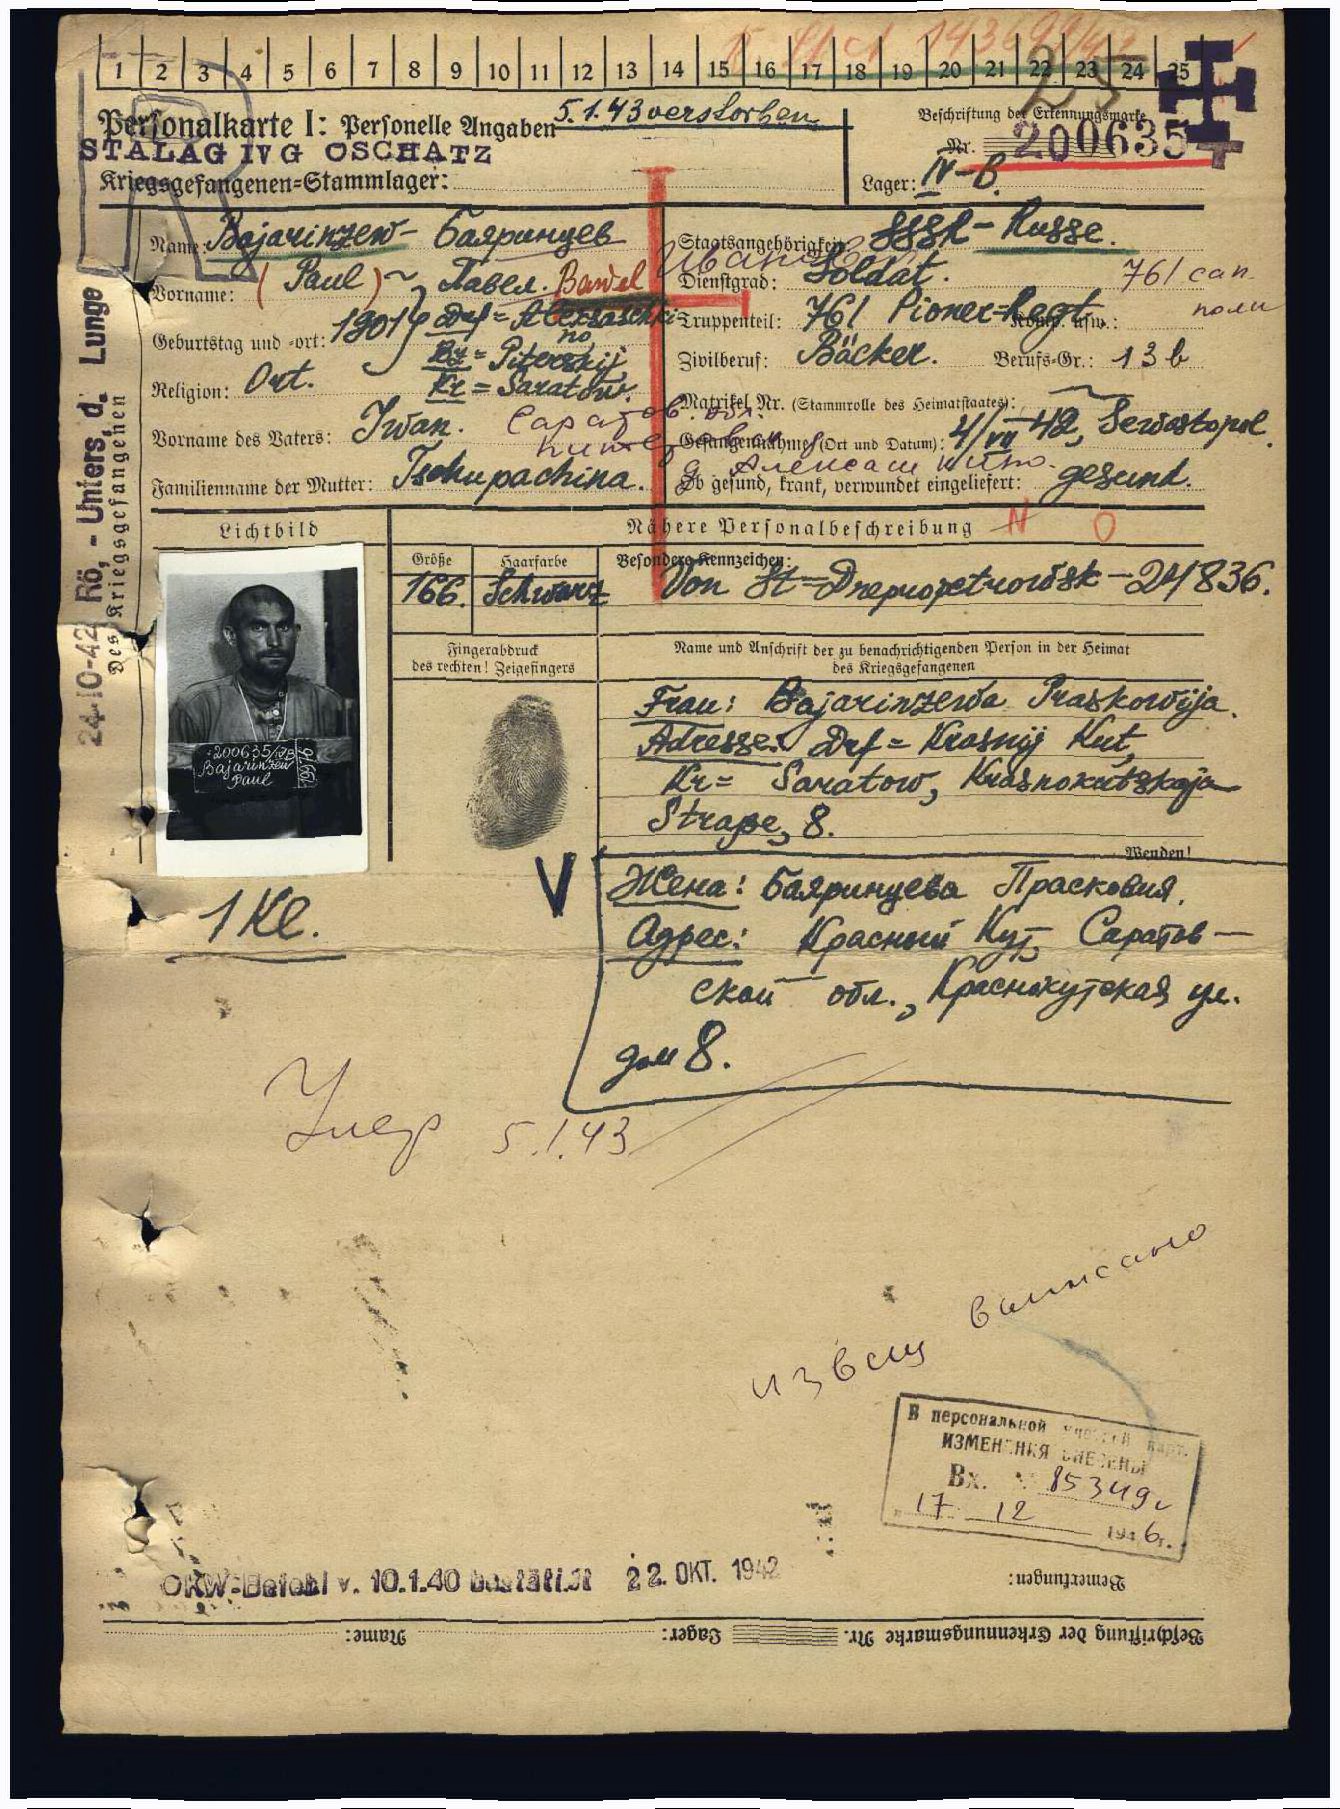 1 2 3 4 5 6 7 8 9 10 11 12 13 14 15 16 17 18 19 20 21 22 23 24 25
25
Personalkarte I: Personelle Angaben 5.1.43 verstorben
Beschriftung der Erkennungsmarke
Nr. 200635
STALAG IV G OSCHATZ
Kriegsgefangenen-Stammlager:
Lager: IV-B.
Name: Bajarinzew - Бояринцев
Staatsangehörigkeit: SSSR - Russe.
Иван
Vorname: (Paul) ~ Павел. Pawel
Dienstgrad: Soldat.
761 сап.
полк
Geburtstag und -ort: 1901 Drf = Alexaschki-
no,
Bz = Piterskij
Kr = Saratow.
Truppenteil: 761 Pioner-Regt. Komp. usw.:
Zivilberuf: Bäcker. Berufs-Gr.: 13 b
Religion: Ort.
Matrikel Nr. (Stammrolle des Heimatstaates): ~
Саратов. обл.
Vorname des Vaters: Iwan.
Gefangennahme (Ort und Datum): 4/VII 42, Sewastopol.
Familienname der Mutter: Tschupachina.
Ob gesund, krank, verwundet eingeliefert: gesund.
24-10-42 Rö.-Unters. d. Lunge
Des Kriegsgefangenen
Lichtbild
Nähere Personalbeschreibung N O
Größe Haarfarbe Besondere Kennzeichen:
166. Schwarz Von St = Dnepropetrowsk - 24836.
Fingerabdruck
des rechten! Zeigefingers
Name und Anschrift der zu benachrichtigenden Person in der Heimat
des Kriegsgefangenen
Frau: Bajarinzewa Praskowija.
Adresse: Drf = Krasnij Kut,
Kr = Saratow, Krasnokutskaja
Straße, 8.
200635/IVB
Bajarinzew
Paul
Wenden!
V
1 Kl.
Жена: Бояринцева Прасковия.
Адрес: Красный Кут, Саратов-
ской обл., Краснокутская ул.
дом 8.
Умер 5.1.43
извещ выписано
В персональной учетной карт.
ИЗМЕНЕНИЯ ВНЕСЕНЫ
Вх. № 85349с
17 12 1946г.
OKW-Befehl v. 10.1.40 bestätigt 22. OKT. 1942
Bemerkungen:
Beschriftung der Erkennungsmarke Nr. Lager: Name: